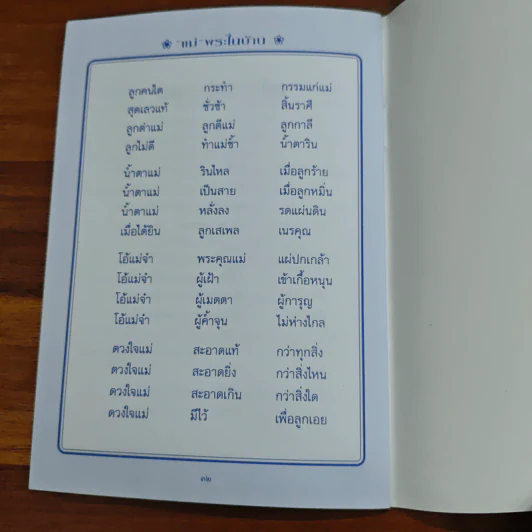 "แม่" พระในบ้าน
ลูกคนใด กระทำ กรรมแก่แม่
สุดเลวแท้ ชั่วช้า สิ้นราศี
ลูกด่าแม่ ลูกตีแม่ ลูกกาลี
ลูกไม่ดี ทำแม่ช้ำ น้ำตาริน
น้ำตาแม่ รินไหล เมื่อลูกร้าย
น้ำตาแม่ เป็นสาย เมื่อลูกหมิ่น
น้ำตาแม่ หลั่งลง รดแผ่นดิน
เมื่อได้ยิน ลูกเสเพล เนรคุณ
โอ้แม่จ๋า พระคุณแม่ แผ่ปกเกล้า
โอ้แม่จ๋า ผู้เฝ้า เข้าเกื้อหนุน
โอ้แม่จ๋า ผู้เมตตา ผู้การุญ
โอ้แม่จ๋า ผู้ค้ำจุน ไม่ห่างไกล
ดวงใจแม่ สะอาดแท้ กว่าทุกสิ่ง
ดวงใจแม่ สะอาดยิ่ง กว่าสิ่งไหน
ดวงใจแม่ สะอาดเกิน กว่าสิ่งใด
ดวงใจแม่ มีไว้ เพื่อลูกเอย